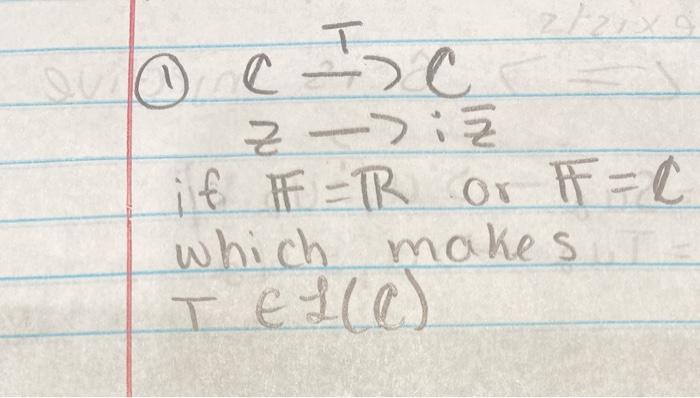 ① ℂ —T—> ℂ
z —> i z̄
if 𝔽 = ℝ or 𝔽 = ℂ
which makes
T ∈ ℒ(ℂ)